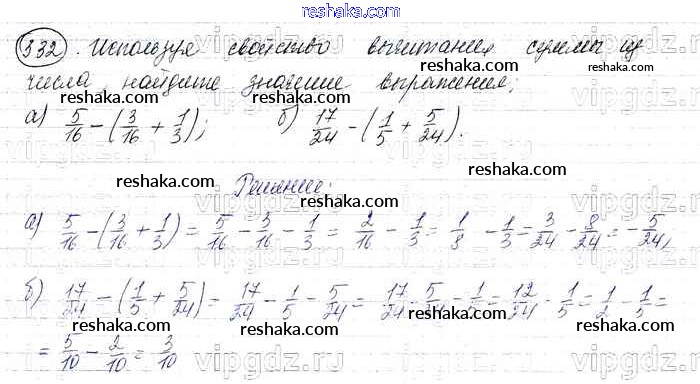 reshaka.com
332. Используя свойство вычитания суммы из
reshaka.com
числа, найдите значение выражения;
reshaka.com reshaka.com vipgdz.ru
а) 5/16 − (3/16 + 1/3); б) 17/24 − (1/5 + 5/24).
reshaka.com reshaka.com
reshaka.com Решение: reshaka.com
а) 5/16 − (3/16 + 1/3) = 5/16 − 3/16 − 1/3 = 2/16 − 1/3 = 1/8 − 1/3 = 3/24 − 8/24 = −5/24,
reshaka.com reshaka.com
б) 17/24 − (1/5 + 5/24) = 17/24 − 1/5 − 5/24 = 17/24 − 5/24 − 1/5 = 12/24 − 1/5 = 1/2 − 1/5 =
reshaka.com reshaka.com reshaka.com
= 5/10 − 2/10 = 3/10
vipgdz.ru
reshaka.com